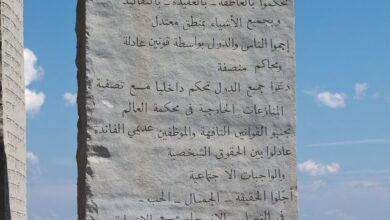 تحكموا بالعاطفة ـ بالعقيدة ـ بالتقاليد
وبجميع الأشياء بمنطق معتدل
إحموا الناس والدول بواسطة قونين عادلة
ومحاكم منصفة
دعوا جميع الدول تحكم داخليا مسع تصفية
المنازعات الخارجية في محكمة العالم
تجنبو القوانين التافهة والموظفين عديمي الفائدة
عادلوا بين الحقوق الشخصية
والواجبات الا جتماعية
أجلوا الحقيقة ـ الجمال ـ الحب ـ